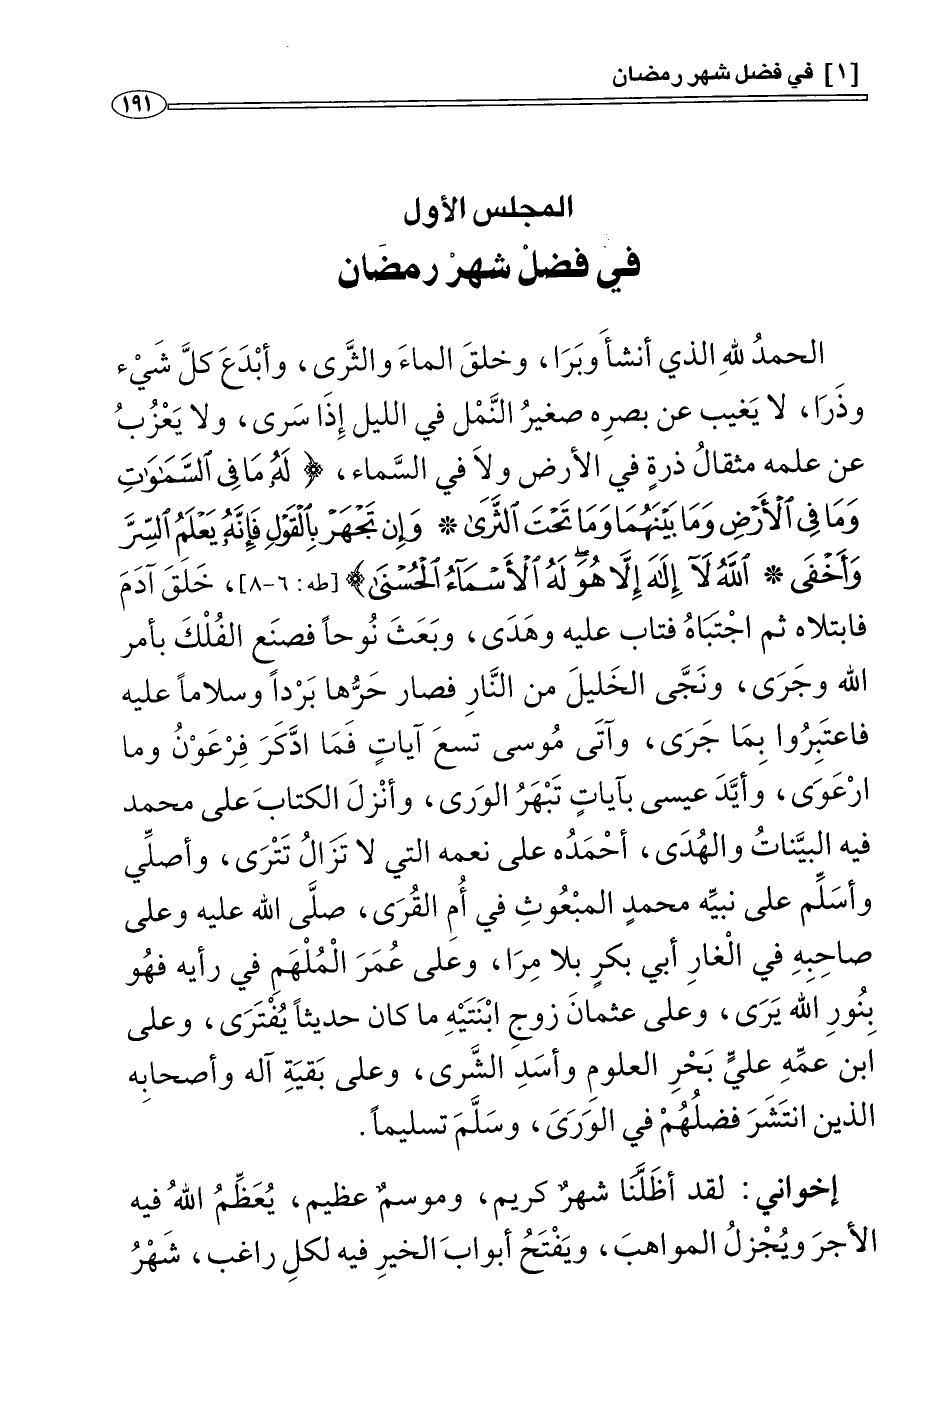 [١] في فضل شهر رمضان
١٩١
المجلس الأول
في فضل شهر رمضان
الحمدُ للهِ الذي أنشأَ وبَرَا، وخلقَ الماءَ والثَّرى، وأبْدَعَ كلَّ شَيْء
وذَرَا، لا يَغيب عن بصرِه صغيرُ النَّمْل في الليل إِذَا سَرى، ولا يَعْزُبُ
عن علمه مثقالُ ذرةٍ في الأرض ولاَ في السَّماء، ﴿ لَهُۥ مَا فِى ٱلسَّمَٰوَٰتِ
وَمَا فِى ٱلْأَرْضِ وَمَا بَيْنَهُمَا وَمَا تَحْتَ ٱلثَّرَىٰ * وَإِن تَجْهَرْ بِٱلْقَوْلِ فَإِنَّهُۥ يَعْلَمُ ٱلسِّرَّ
وَأَخْفَى * ٱللَّهُ لَآ إِلَٰهَ إِلَّا هُوَۖ لَهُ ٱلْأَسْمَآءُ ٱلْحُسْنَىٰ﴾ [طه: ٦-٨]، خَلَقَ آدَمَ
فابتلاه ثم اجْتَبَاهُ فتاب عليه وهَدَى، وبَعَثَ نُوحاً فصنَع الفُلْكَ بأمر
الله وجَرَى، ونَجَّى الخَليلَ من النَّارِ فصار حَرُّها بَرْداً وسلاماً عليه
فاعتَبِرُوا بِمَا جَرَى، وآتَى مُوسى تسعَ آياتٍ فَمَا ادَّكَرَ فِرْعَوْنُ وما
ارْعَوَى، وأيَّدَ عيسى بآياتٍ تَبْهَرُ الوَرى، وأنْزلَ الكتابَ على محمد
فيه البيَّناتُ والهُدَى، أحْمَدُه على نعمه التي لا تَزَالُ تَتْرَى، وأصلِّي
وأسَلِّم على نبيِّه محمدٍ المبْعُوثِ في أُم القُرَى، صلَّى الله عليه وعلى
صاحِبِهِ في الْغارِ أبي بكرٍ بلا مِرَا، وعلى عُمَرَ الْمُلْهَمِ في رأيه فهُو
بِنُورِ الله يَرَى، وعلى عثمانَ زوجِ ابْنَتَيْهِ ما كان حديثاً يُفْتَرَى، وعلى
ابن عمِّهِ عليٍّ بَحْرِ العلومِ وأسَدِ الشَّرى، وعلى بَقيَةِ آله وأصحابِه
الذين انتَشَرَ فضلُهُمْ في الوَرَىَ، وسَلَّمَ تسليماً.
إخواني: لقد أظَلَّنَا شهرٌ كريم، وموسمٌ عظيم، يُعَظِّمُ اللهُ فيه
الأجرَ ويُجْزلُ المواهبَ، ويَفْتَحُ أبوابَ الخيرِ فيه لكلِ راغب، شَهْرُ